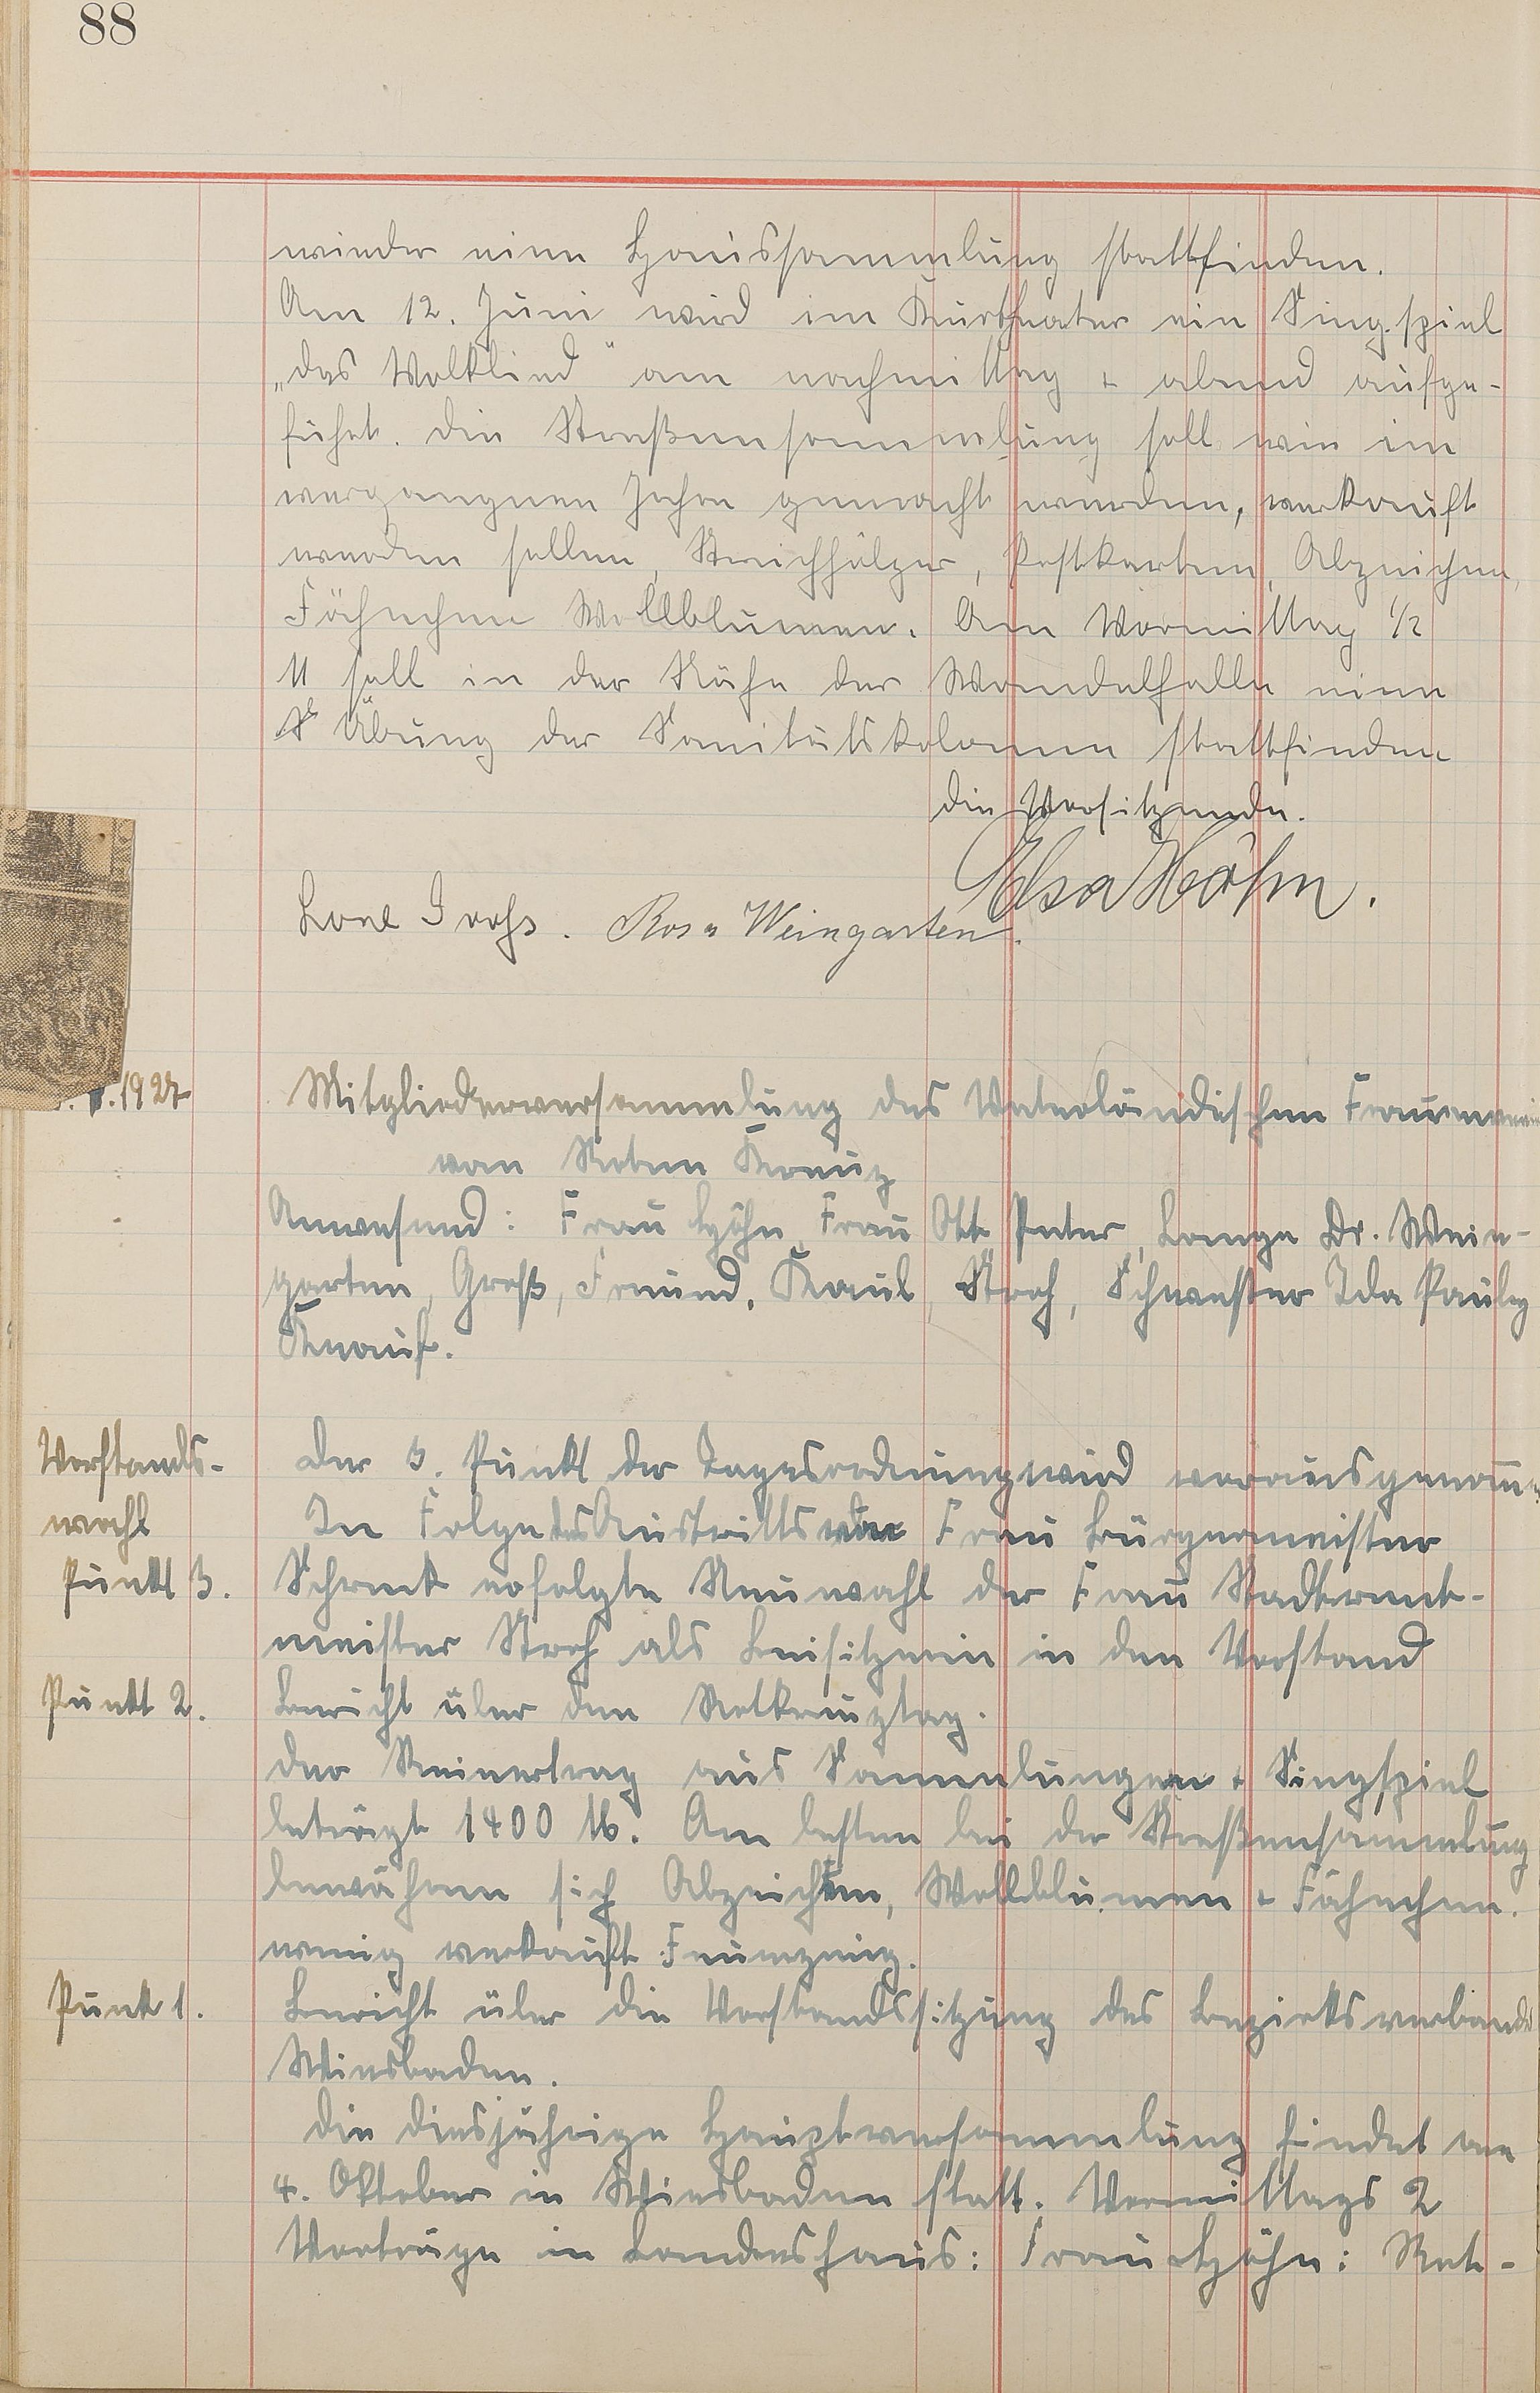 88
wieder eine Haussammlung stattfinden.
Am 12. Juni wird im Kurtheater ein Singspiel
„das Volklied" am nachmittag + abend aufge-
führt. die Straßensammlung soll wie im
vergangnen Jahre gemacht werden, verkauft
werden sollen, Streichhölzer, Postkarten, Abzeichen,
Fähnchen Wollblumen. Am Vormittag 1/2
11 soll in der Nähe der Wandelhalle eine
Übung der Sanitätskolonne stattfinden
die Vorsitzende.
Elsa Höhn.
Lore Gross. Rosa Weingarten.
.1927
Mitgliederversammlung des Vaterländischen Frauenverein
vom Roten Kreuz
Anwesend: Frau Höhn, Frau Ott Peter, Lange Dr. Wein-
garten, Groß, Freund, Kaul, Stroh, Schwester Ida Pauly
Knauf.
Vorstands-
wahl
Punkt 3.
der 3. Punkt der Tagesordnung wird vorausgenomm
In Folge des Austritts von Frau Bürgermeister
Schreck erfolgte Neuwahl der Frau Stadtrent-
meister Stroh als Beisitzerin in den Vorstand
Punkt 2.
Bericht über den Rotkreuztag.
der Reinertrag aus Sammlungen + Singspiel
beträgt 1400 M. Am besten bei der Straßensammlung
bewähren sich Abzeichen, Wollblumen + Fähnchen.
wenig verkauft Feuerzeug.
Punkt 1.
Bericht über die Vorstandssitzung des Bezirksverbands
Wiesbaden.
die diesjährige Hauptversammlung findet am
4. Oktober in Wiesbaden statt. Vormittags 2
Vorträge im Landeshaus: Frau Höhn: Rot-